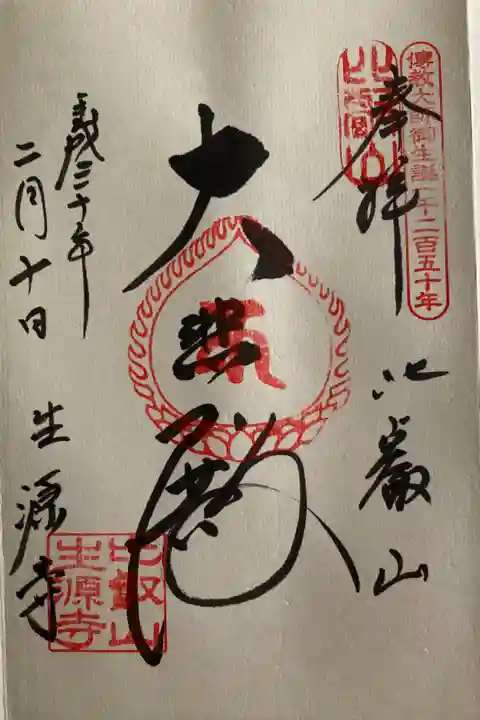 傳教大師御生誕一千二百五十年
奉拝
比叡山
大悲殿
平成三十年
二月十日 生源寺
比叡山
生源寺